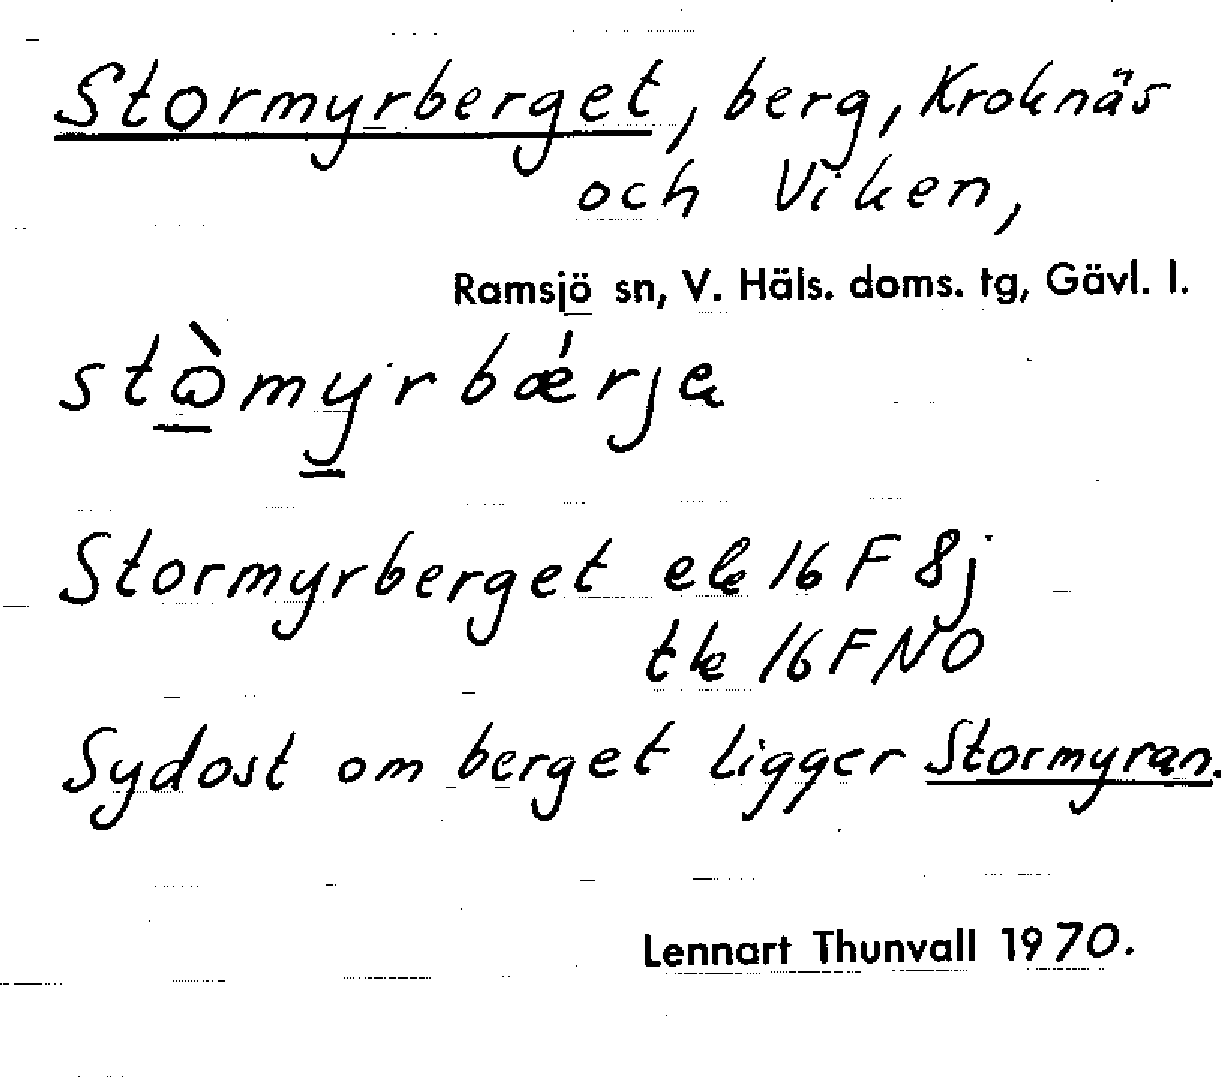 Stormyrberget, berg, Kroknäs
och Viken,
Ramsjö sn, V. Häls. doms. tg, Gävl. l.
Stormyrberget ek 16 F 8j
tk 16 F NO
Sydost om berget ligger Stormyran.
Lennart Thunvall 1970.